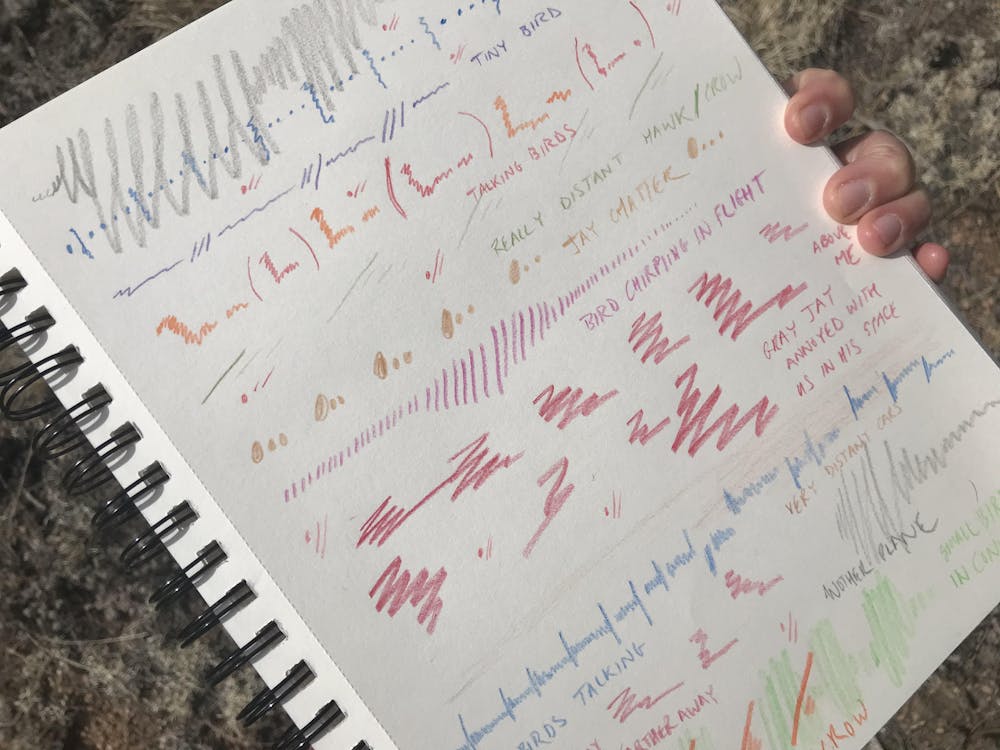 TINY BIRD
TALKING BIRDS
REALLY DISTANT HAWK/CROW
JAY CHATTER
BIRD CHIRPING IN FLIGHT
ABOVE
ME
GRAY JAY
ANNOYED WITH
US IN HIS SPACE
VERY DISTANT CARS
ANOTHER PLANE
SMALL BIR
IN CON
BIRDS TALKING
FARTHER AWAY
CROW